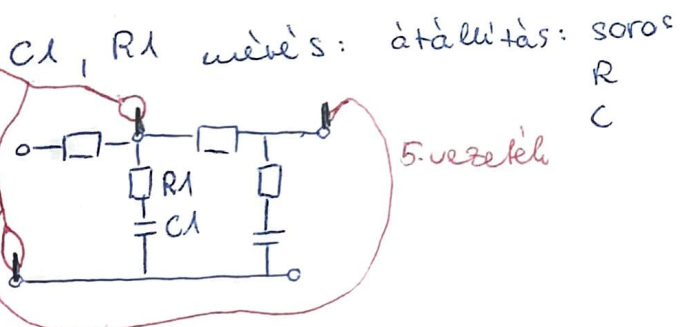 C1, R1 mérés: átállítás: soros
R
C
5. vezeték
R1
C1